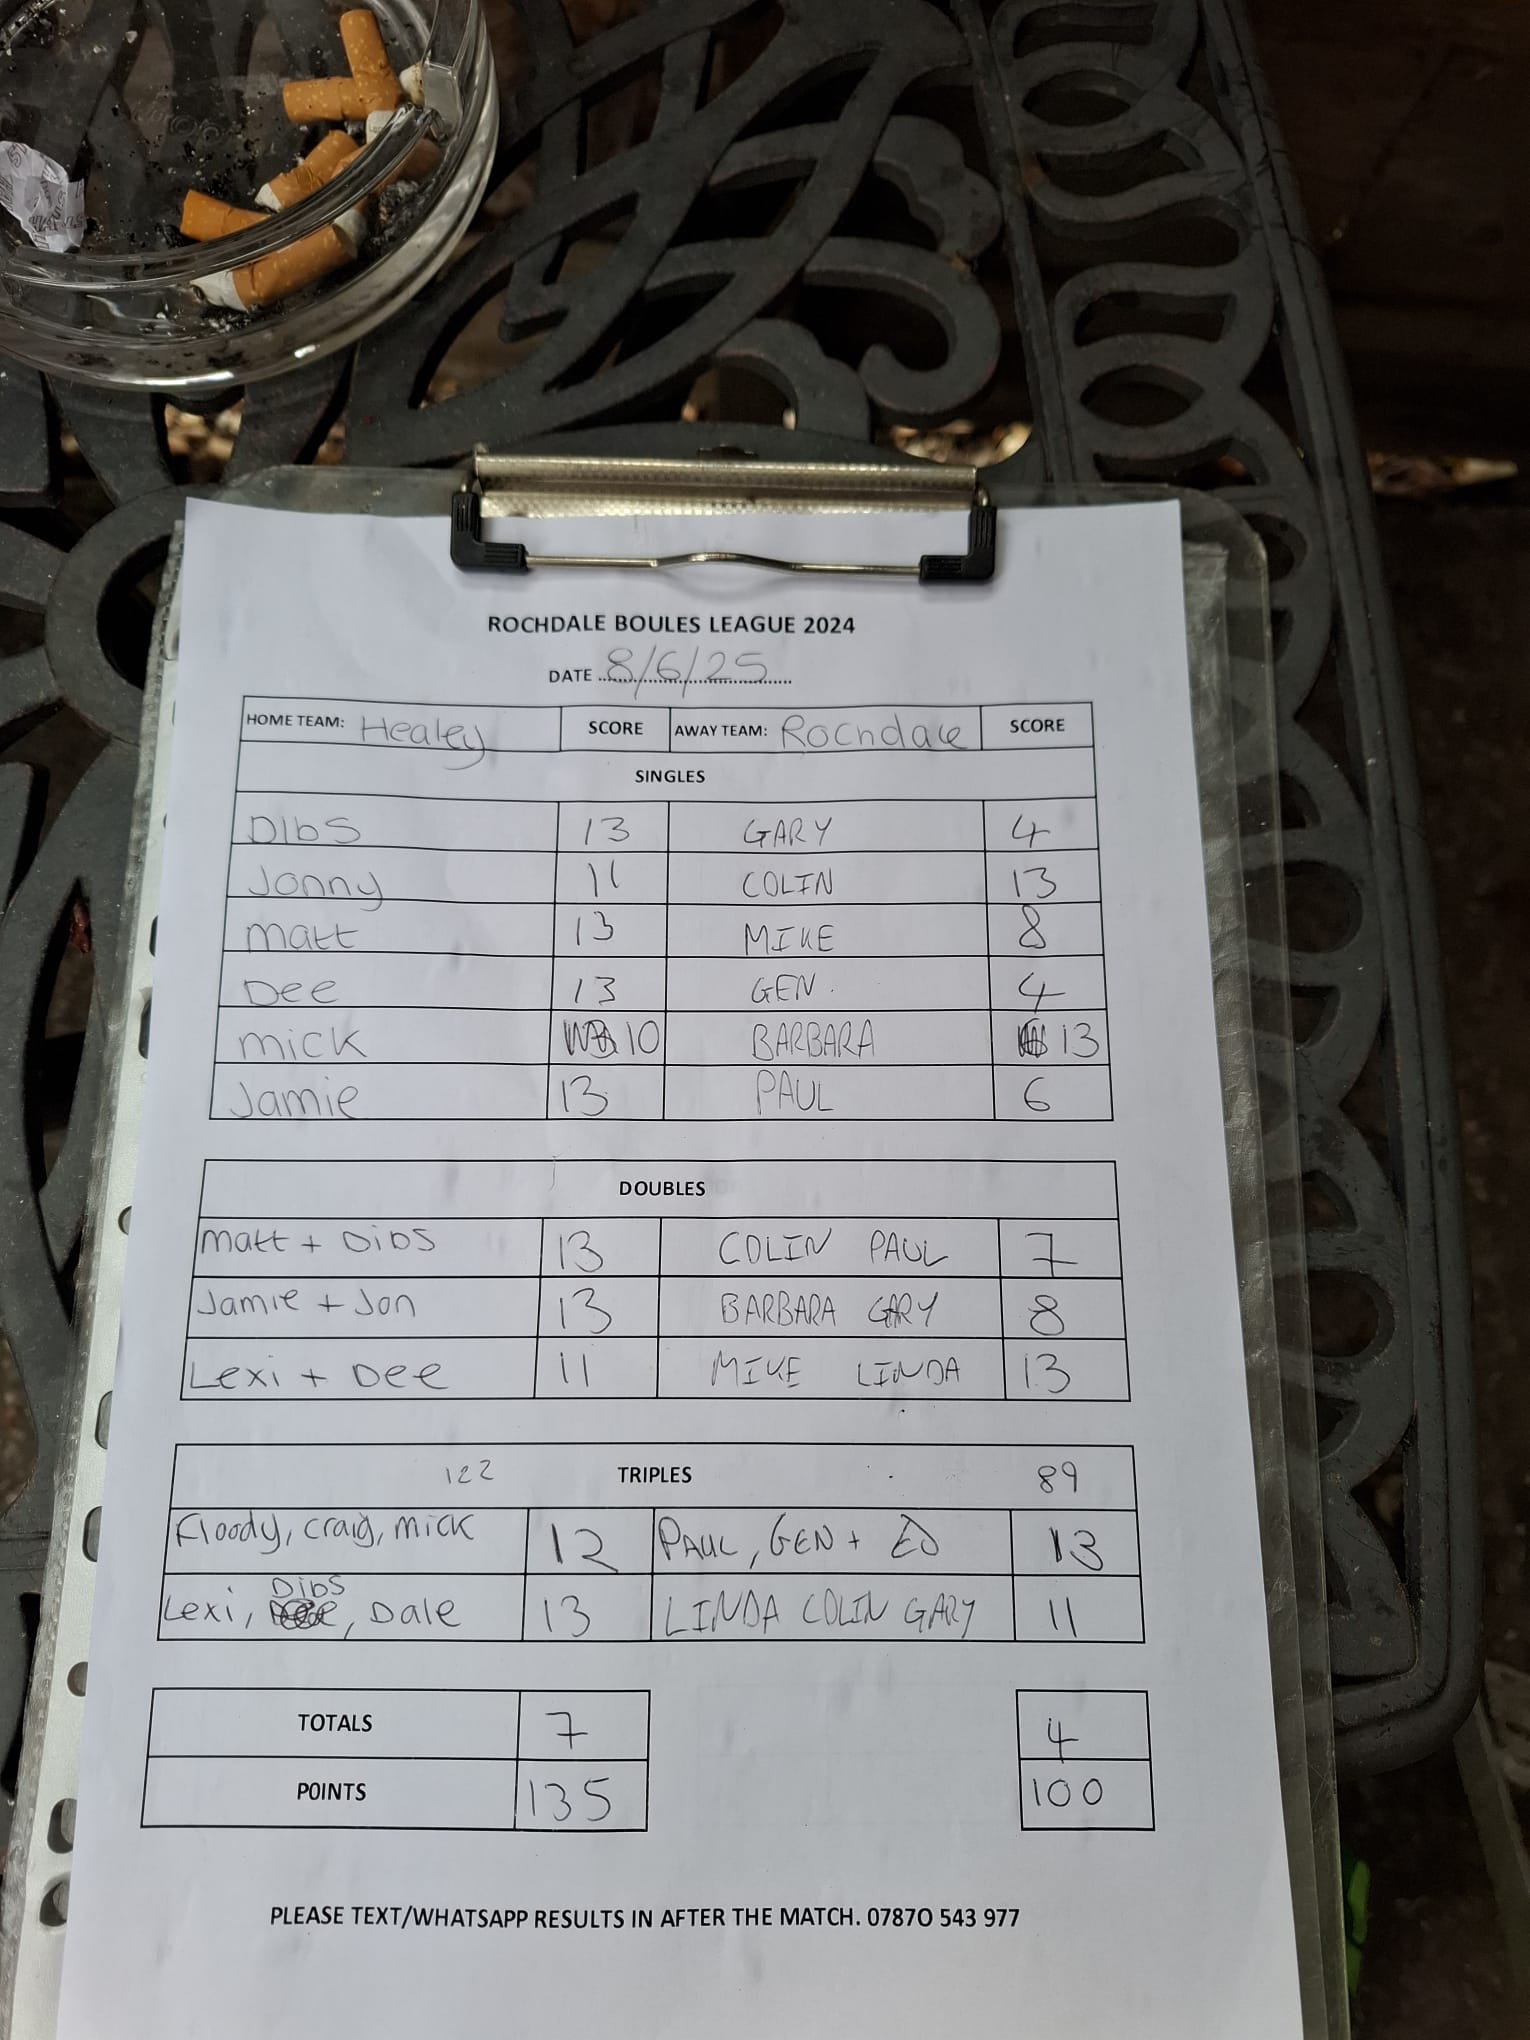 ROCHDALE BOULES LEAGUE 2024
DATE 8/6/25
HOME TEAM: Healey SCORE AWAY TEAM: Rochdale SCORE
SINGLES
Dibs 13 GARY 4
Jonny 11 COLIN 13
Matt 13 MIKE 8
Dee 13 GEN. 4
mick 10 BARBARA 13
Jamie 13 PAUL 6
DOUBLES
Matt + Dibs 13 COLIN PAUL 7
Jamie + Jon 13 BARBARA GARY 8
Lexi + Dee 11 MIKE LINDA 13
122 TRIPLES 89
Floody, craig, mick 12 PAUL, GEN + ED 13
Dibs
Lexi, , Dale 13 LINDA COLIN GARY 11
TOTALS 7 4
POINTS 135 100
PLEASE TEXT/WHATSAPP RESULTS IN AFTER THE MATCH. 07870 543 977